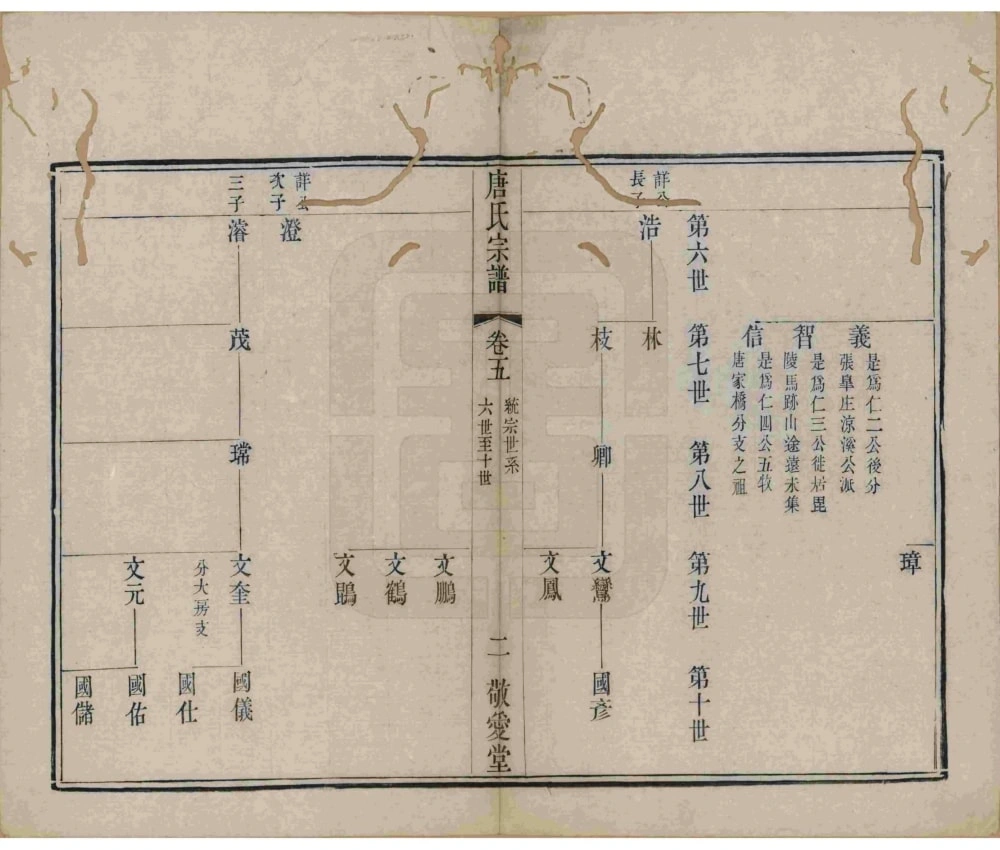 璋
義
是爲仁二公後分
張臯庄涼溪公派
智
是爲仁三公徙居毘
陵馬跡山途遠未集
信
是爲仁四公五牧
唐家橋分支之祖
第六世
第七世
第八世
第九世
第十世
詳公
長子
浩
林
枝
卿
文鸞
國彦
文鳳
唐氏宗譜
卷五
統宗世系
六世至十世
二
敬愛堂
文鵬
文鶴
文鵾
詳公
次子
澄
三子
濬
茂
瑺
文奎
分大房支
國儀
國仕
文元
國佑
國儲